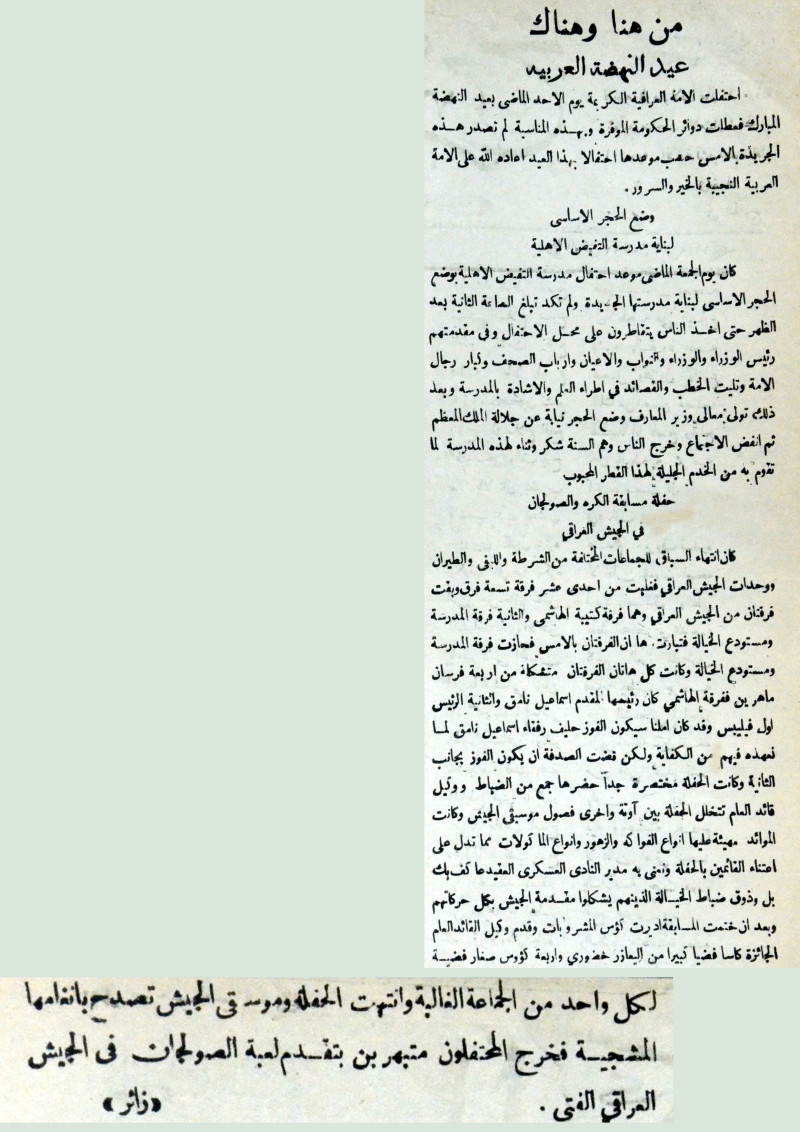 من هنا وهناك
عيد النهضة العربيه
احتفلت الامة العراقية الكريمة يوم الاحد الماضى بعيد النهضة
المبارك فعطلت دوائر الحكومة الموقرة وبهذه المناسبة لم تصدر هذه
الجريدة بالامس حسب موعدها احتفالا بهذا العيد اعاده الله على الامة
العربية النجيبة بالخير والسرور .
وضع الحجر الاساسى
لبناية مدرسة التفيض الاهلية
كان يوم الجمعة الماضى موعد احتفال مدرسة التفيض الاهلية بوضع
الحجر الاساسى لبناية مدرستها الجديدة ولم تكد تبلغ الساعة الثانية بعد
الظهر حتى اخذ الناس يتقاطرون على محل الاحتفال وفى مقدمتهم
رئيس الوزراء والوزراء والنواب والاعيان وارباب الصحف وكبار رجال
الامة وتليت الخطب والقصائد في اطراء العلم والاشادة بالمدرسة وبعد
ذلك تولى معالى وزير المعارف وضع الحجر نيابة عن جلالة الملك المعظم
ثم انفض الاجتماع وخرج الناس وهم السنة شكر وثناء لهذه المدرسة لما
تقوم به من الخدم الجليلة لهذا القطر المحبوب
حفلة مسابقة الكره والصولجان
في الجيش العراقي
كان انتهاء السباق للجماعات المختلفة من الشرطة واللفى والطيران
ووحدات الجيش العراقي فغلبت من احدى عشر فرقة تسعة فرق وبقت
فرقتان من الجيش العراقي وهما فرقة كتيبة الهاشمى والثانية فرقة المدرسة
ومستودع الخيالة فتبارت ها ان الفرقتان بالامس فحازت فرقة المدرسة
ومستودع الخيالة وكانت كل هاتان الفرقتان متشكلة من اربعة فرسان
ماهرين ففرقة الهاشمي كان رئيسها المقدم اسماعيل نامق والثانية الرئيس
اول فيليبس وقد كان املنا سيكون الفوز حليف رفقاء اسماعيل نامق لما
نعهده فيهم من الكفاية ولكن قضت الصدفة ان يكون الفوز بجانب
الثانية وكانت الحفلة مختصرة جداً حضرها جمع من الضباط ووكيل
قائد العام تتخلل الحفلة بين آونة واخرى فصول موسيقى الجيش وكانت
الموائد مهيئة عليها انواع الفواكه والزهور وانواع الماكولات مما تدل على
اعتناء القائمين بالحفلة ونعنى به مدير النادى العسكرى العقيد عاكف بك
بل وذوق ضباط الخيالة الذينهم يشكلوا مقدمة الجيش بكل حركاتهم
وبعد ان ختمت المسابقة اديرت كؤس المشروبات وقدم وكيل القائد العام
الجائزة كاسا فضيا كبيرا من اليعازر خضوري واربعة كؤوس صغار فضية
لكل واحد من الجماعة الغالبة وانتهت الحفلة وموسقى الجيش تصدح بانغامها
المشجية فخرج المحتفلون متبهرين بتقدم لعبة الصولجان فى الجيش
العراقي الفتى .
«زائر»